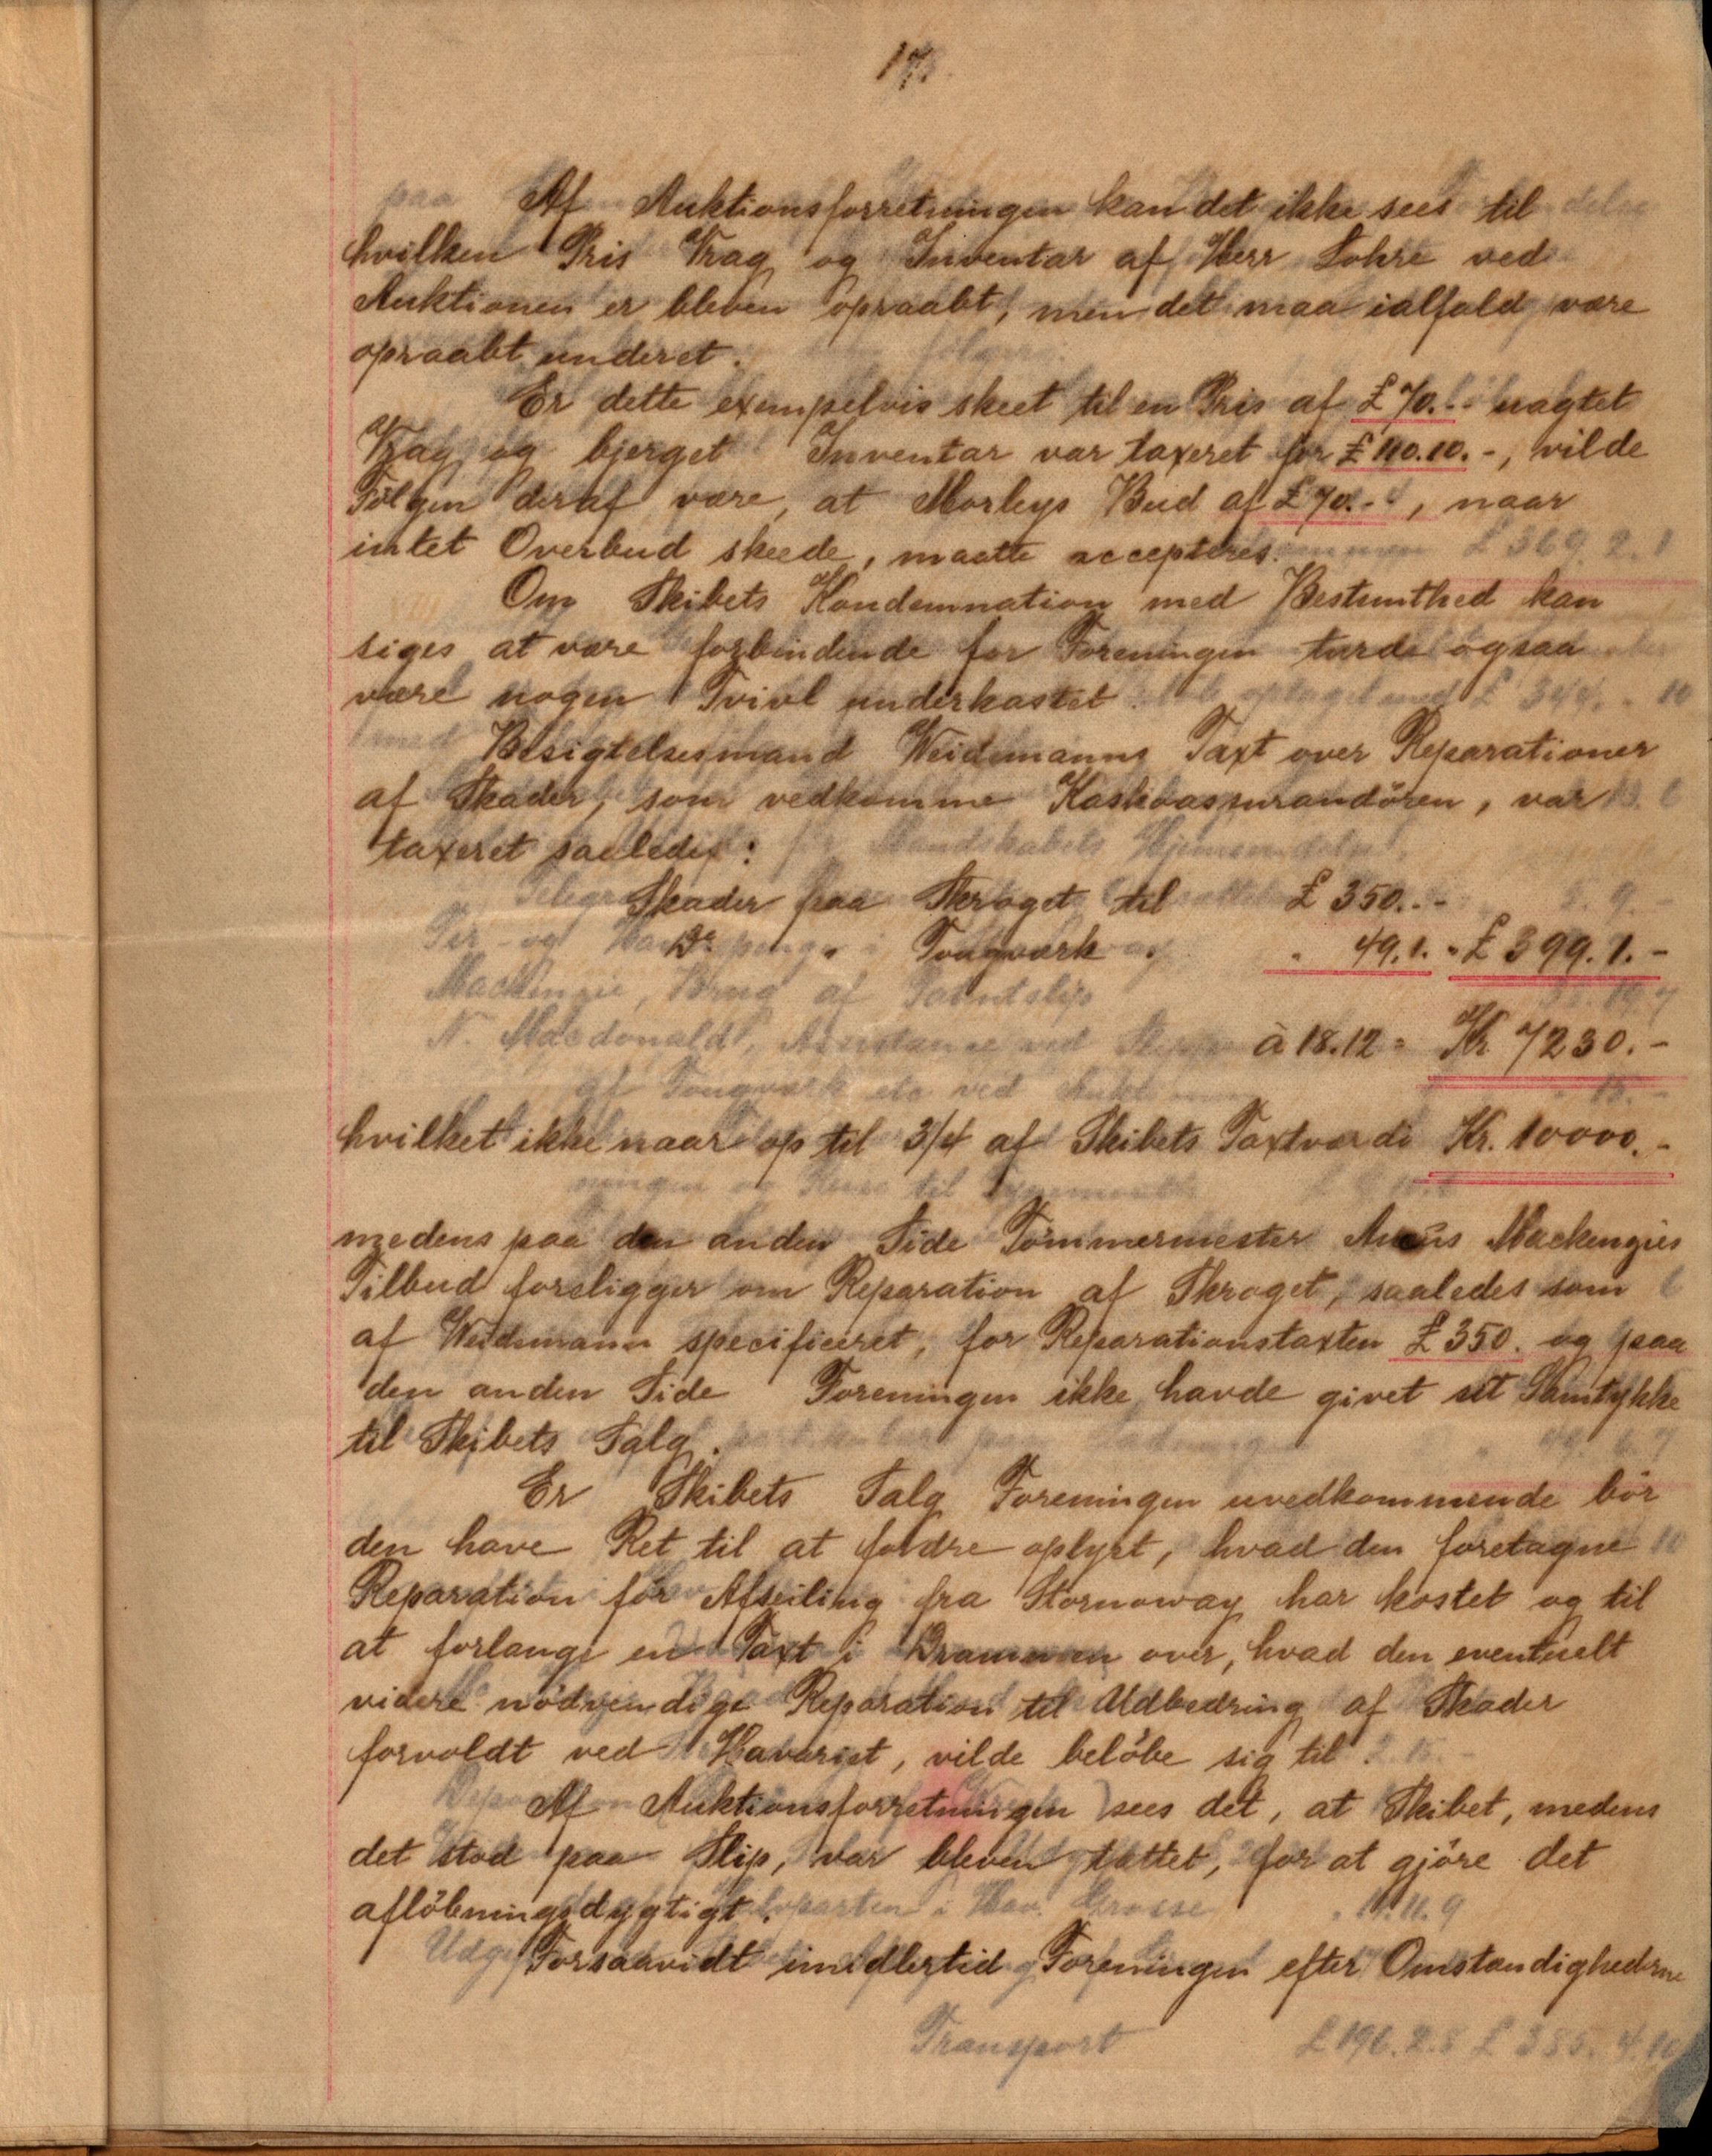 17.
Af Auktionsforretningen kan det ikke sees til
hvilken Pris Vrag og Inventar af Herr Lohre ved
Auktionen er bleven opraabt, men det maa ialfald være
opraabt underet.
Er dette exempelvis skeet til en Pris af £ 70.-- uagtet
Vrag og bjerget Inventar var taxeret for £ 110.10.-, vilde
Følgen deraf være, at Morleys Bud af £ 70.--, naar
intet Overbud skeede, maatte accepteres.
Om Skibets Kondemnation med Bestemthed kan
siges at være forbindende for Foreningen turde ogsaa
være nogen Tvivl underkastet.
Besigtelsesmand Weidemanns Taxt over Reparationer
af Skader, som vedkomme Kaskoassurandören, var
taxeret saaledes:
Skader paa Skroget til £ 350.--
Do " Tougværk " " 49.1.- £ 399.1.-
à 18.12 = Kr. 7230.-
hvilket ikke naar op til 3/4 af Skibets Taxtværdi Kr. 10000.-
medens paa den anden Side Tömmermester Mackenzies
Tilbud foreligger om Reparation af Skroget, saaledes som
af Weidemann specificeret, for Reparationstaxten £ 350. og paa
den anden Side Foreningen ikke havde givet sit Samtykke
til Skibets Salg.
Er Skibets Salg Foreningen uvedkommende bör
den have Ret til at fordre oplyst, hvad den foretagne
Reparation för Afseiling fra Stornoway har kostet og til
at forlange en Taxt i Drammen over, hvad den eventuelt
videre nödvendige Reparation til Udbedring af Skader
forvoldt ved Havariet, vilde belöbe sig til.
Af Auktionsforretningen sees det, at Skibet, medens
det stod paa Slip, var bleven tættet, for at gjöre det
aflöbningsdygtigt.
Forsaavidt imidlertid Foreningen efter Omstændighederne